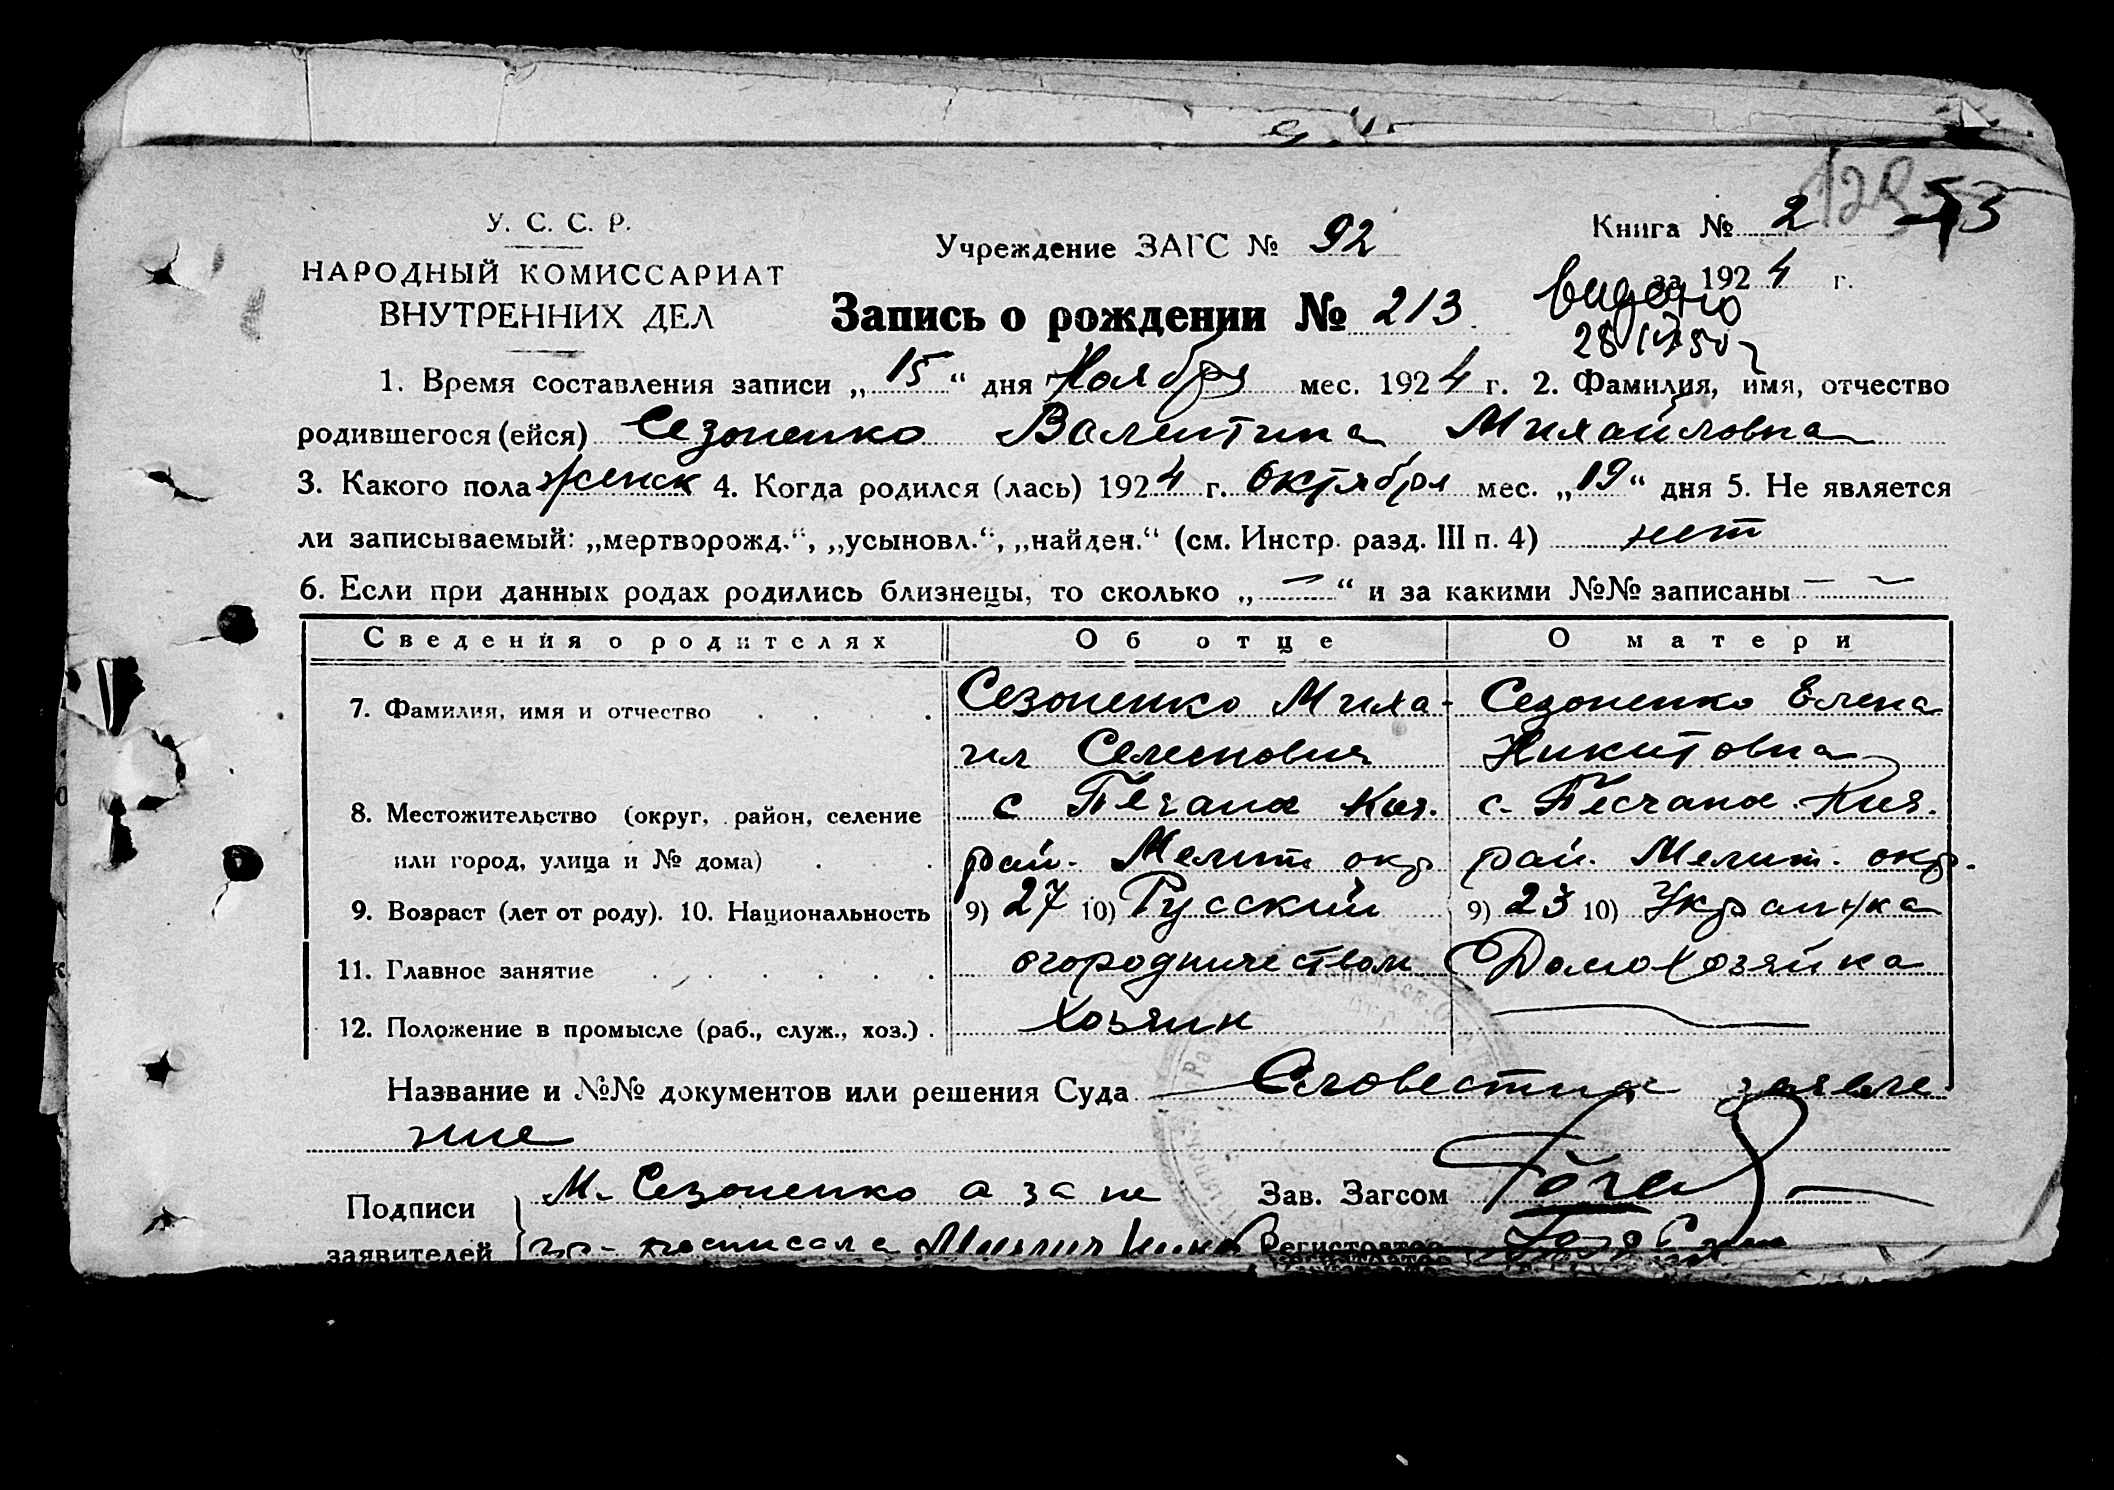 У. С. С. Р.
НАРОДНЫЙ КОМИССАРИАТ
ВНУТРЕННИХ ДЕЛ
Учреждение ЗАГС № 92
Книга № 2
за 1924 г.
Запись о рождении № 213
видано
1. Время составления записи „15“ дня Ноября мес. 1924 г. 2. Фамилия, имя, отчество
родившегося (ейся) Сезоненко Валентина Михайловна
3. Какого пола женск 4. Когда родился (лась) 1924 г. Октября мес. „19“ дня 5. Не является
ли записываемый: „мертворожд.“, „усыновл.“, „найден.“ (см. Инстр. разд. III п. 4) нет
6. Если при данных родах родились близнецы, то сколько „—“ и за какими №№ записаны — —
Сведения о родителях Об отце О матери
7. Фамилия, имя и отчество Сезоненко Миха- Сезоненко Елена
ил Семенович Никитовна
8. Местожительство (округ, район, селение с Печана Кия. с. Песчана Кия.
или город, улица и № дома) рай. Мелит окр рай. Мелит. окр.
9. Возраст (лет от роду). 10. Национальность 9) 27 10) Русский 9) 23 10) Украинка
11. Главное занятие огородничеством Домохозяйка
12. Положение в промысле (раб., служ., хоз.) Хозяин —
Название и №№ документов или решения Суда Словестное заявле
ние
Подписи М. Сезоненко а за не Зав. Загсом
заявителей гр- росписался Регистратор